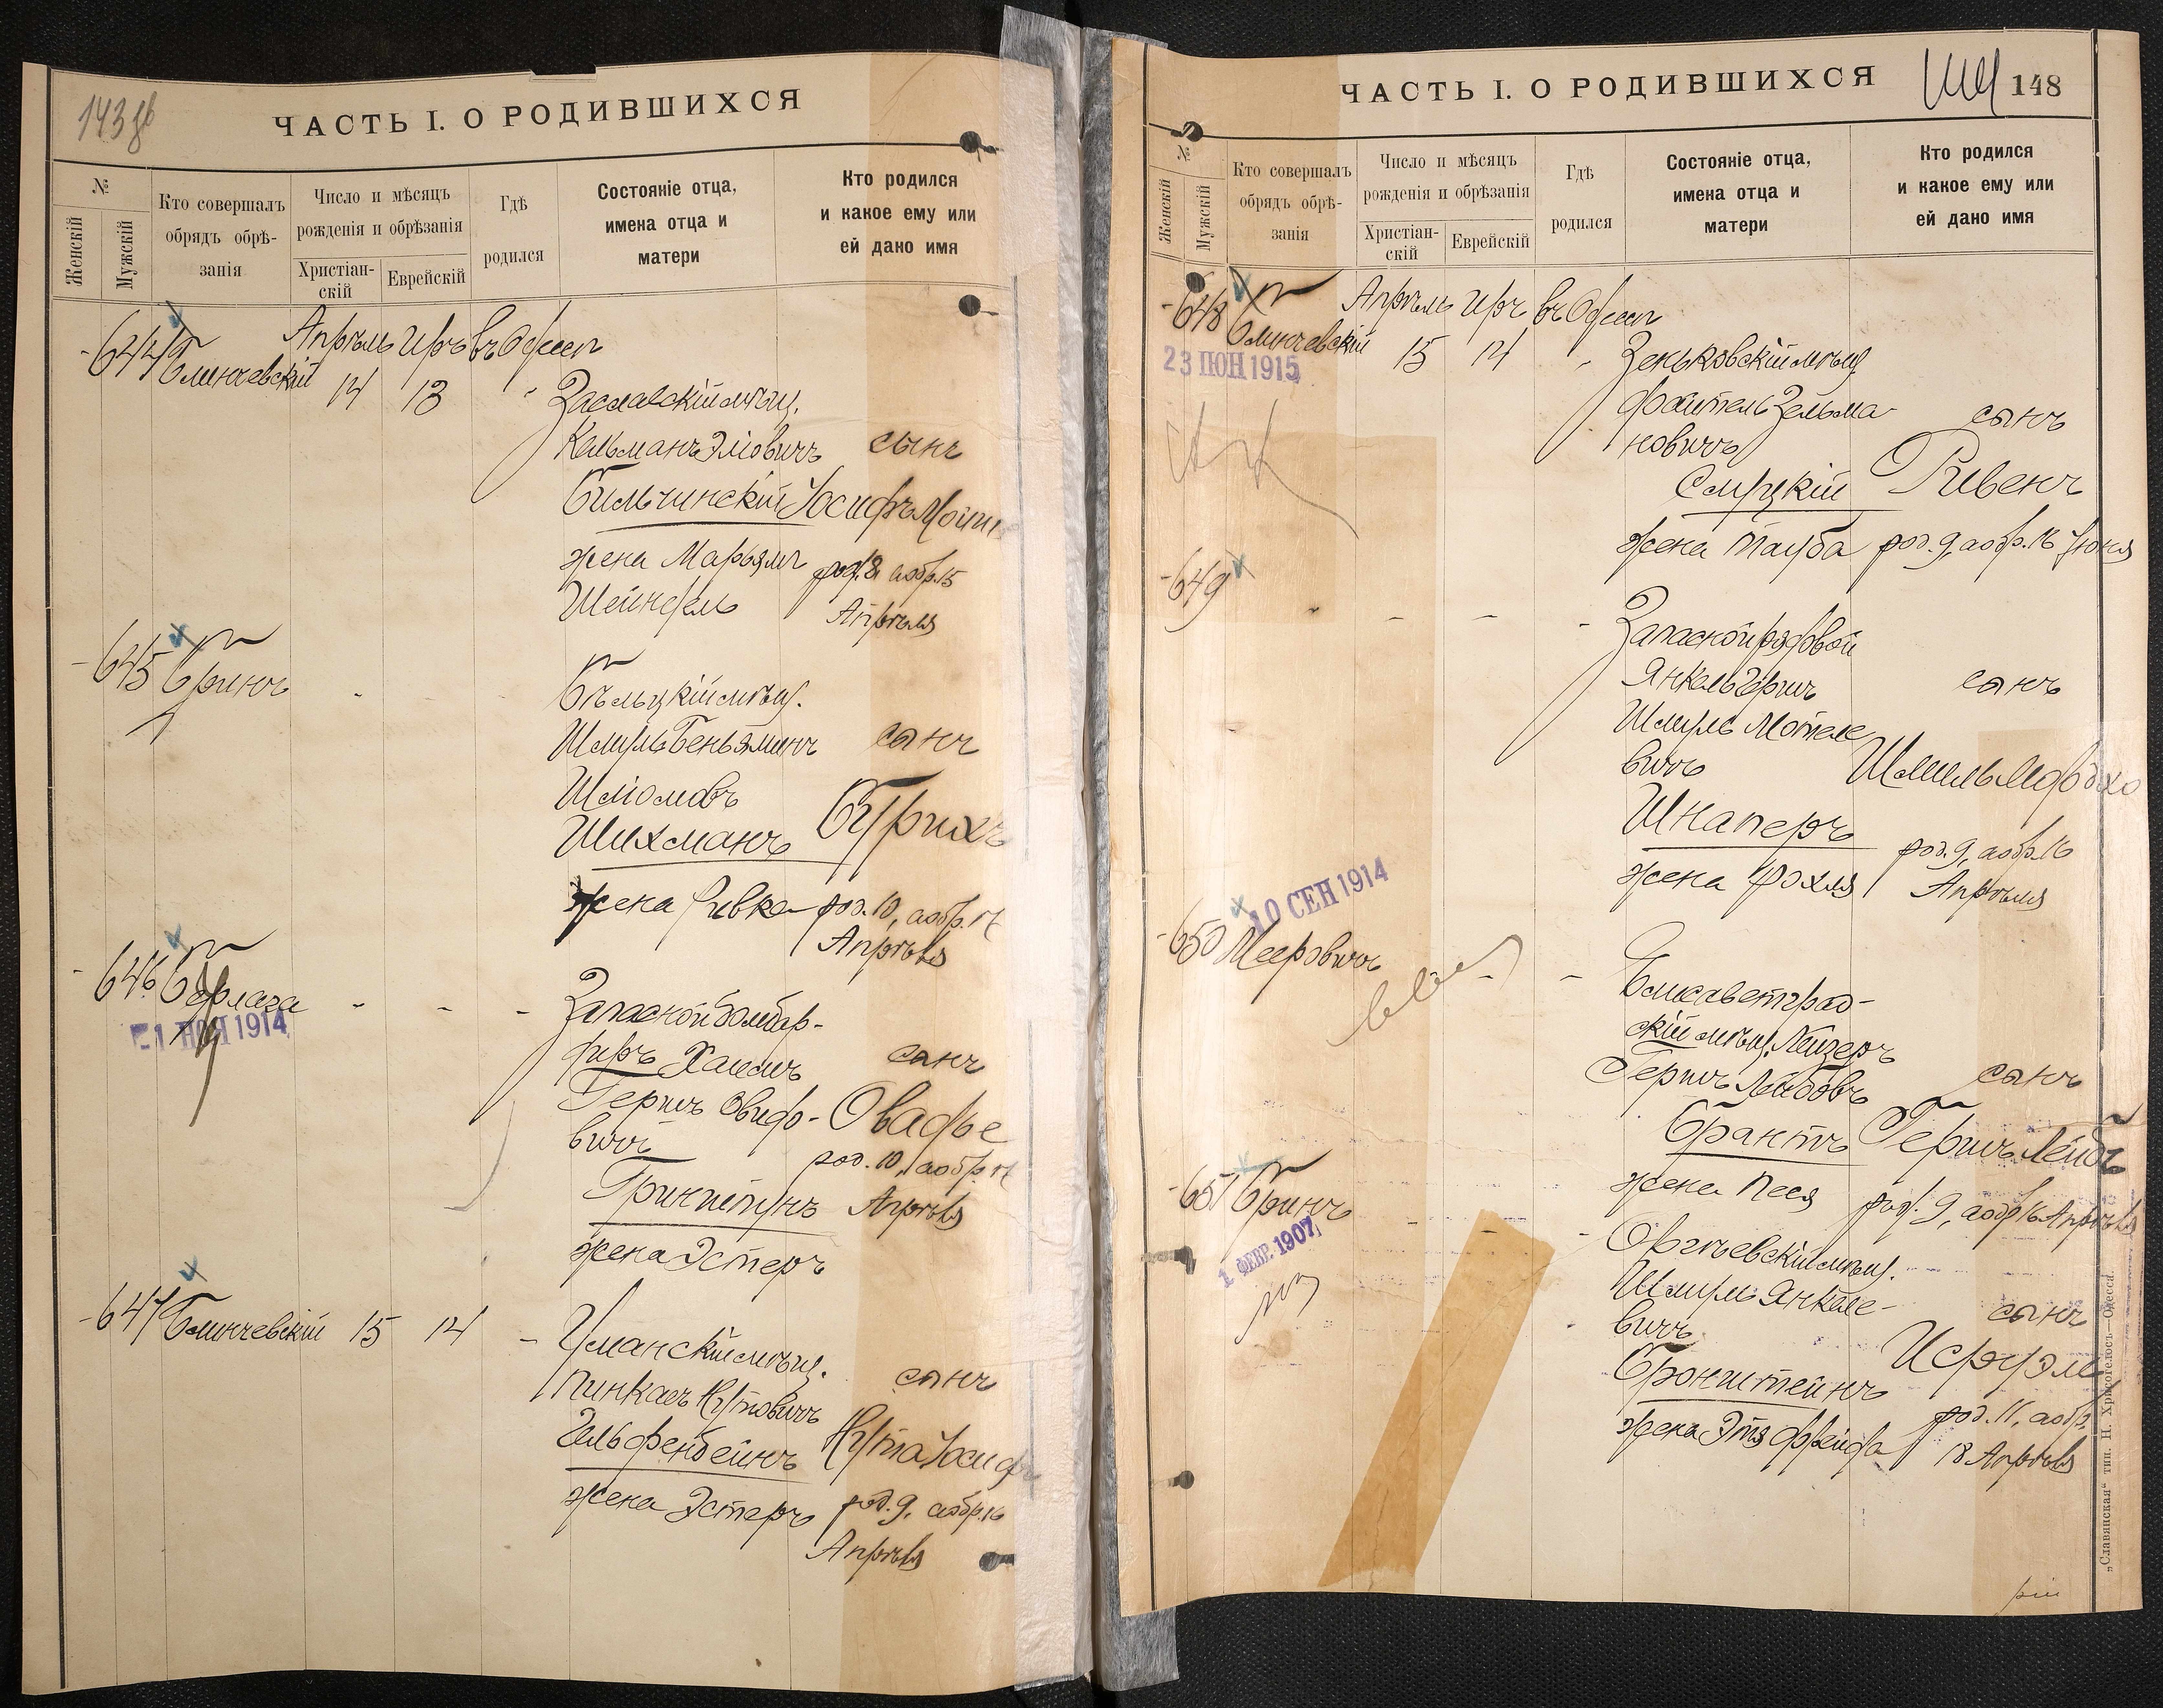 143 об
ЧАСТЬ I. О РОДИВШИХСЯ
№
Женскій
Мужскій
Кто совершалъ
обрядъ обрѣ-
занія
Число и мѣсяцъ
рожденія и обрѣзанія
Христіан-
скій
Еврейскій
Гдѣ
родился
Состояніе отца,
имена отца и
матери
Кто родился
и какое ему или
ей дано имя
Апрѣль Иръ въ Одессѣ
644 Блинчевскій 14 13 Заславскій мѣщ.
Кальманъ Эліовичъ сынъ
Бильчинскій Іосифъ Мойше
жена Марьямъ род. 8, а обр. 15
Шейндель Апрѣля
645 Бринъ - - Бѣльцкій мѣщ.
Шмуль Беньяминъ сынъ
Шліомовъ
Шихманъ Бурихъ
жена Ривка род. 10, а обр. 17
Апрѣля
646 Берлага - - - Запасной бомбар-
21 НОЯ 1914
диръ Хаимъ сынъ
Гершъ Овидо- Овадье
вичъ род. 10, а обр. 17
Гринштунъ Апрѣля
жена Эстеръ
647 Блинчевскій 15 14 - Уманскій мѣщ.
Пинкасъ Нутовичъ сынъ
Гельфенбейнъ Нута Іосифъ
жена Эстеръ род. 9, а обр. 16
Апрѣля
148
ЧАСТЬ I. О РОДИВШИХСЯ
№
Женскій
Мужскій
Кто совершалъ
обрядъ обрѣ-
занія
Число и мѣсяцъ
рожденія и обрѣзанія
Христіан-
скій
Еврейскій
Гдѣ
родился
Состояніе отца,
имена отца и
матери
Кто родился
и какое ему или
ей дано имя
Апрѣль Иръ въ Одессѣ
648 Блинчевскій 15 14 Зеньковскій мѣщ.
23 ІЮН 1915
Файтель Зельма-
новичъ сынъ
Слуцкій Рувенъ
жена Тауба род. 9, а обр. 16
649 - - - Запасной рядовой
Янкель Гершъ сынъ
Шмуль Мотеле
вичъ Шмиль Мордхо
Шнаперъ род. 9, а обр. 16
жена Рохля Апрѣля
10 СЕН 1914
650 Мееровичъ - - Елисаветград-
скій мѣщ. Лейзеръ
Гершъ Лейбовъ сынъ
Брантъ Гершъ Лейбъ
жена Песя род. 9, а обр. 16 Апрѣля
651 Бринъ - - - Оргѣевскій мѣщ.
1 ФЕВР. 1907
Шмуль Янкеле-
вичъ сынъ
Бронштейнъ Исруэль
жена Этя Фрейда род. 11, а обр.
18 Апрѣля
„Славянская“ тип. Н. Хрисогелосъ—Одесса.